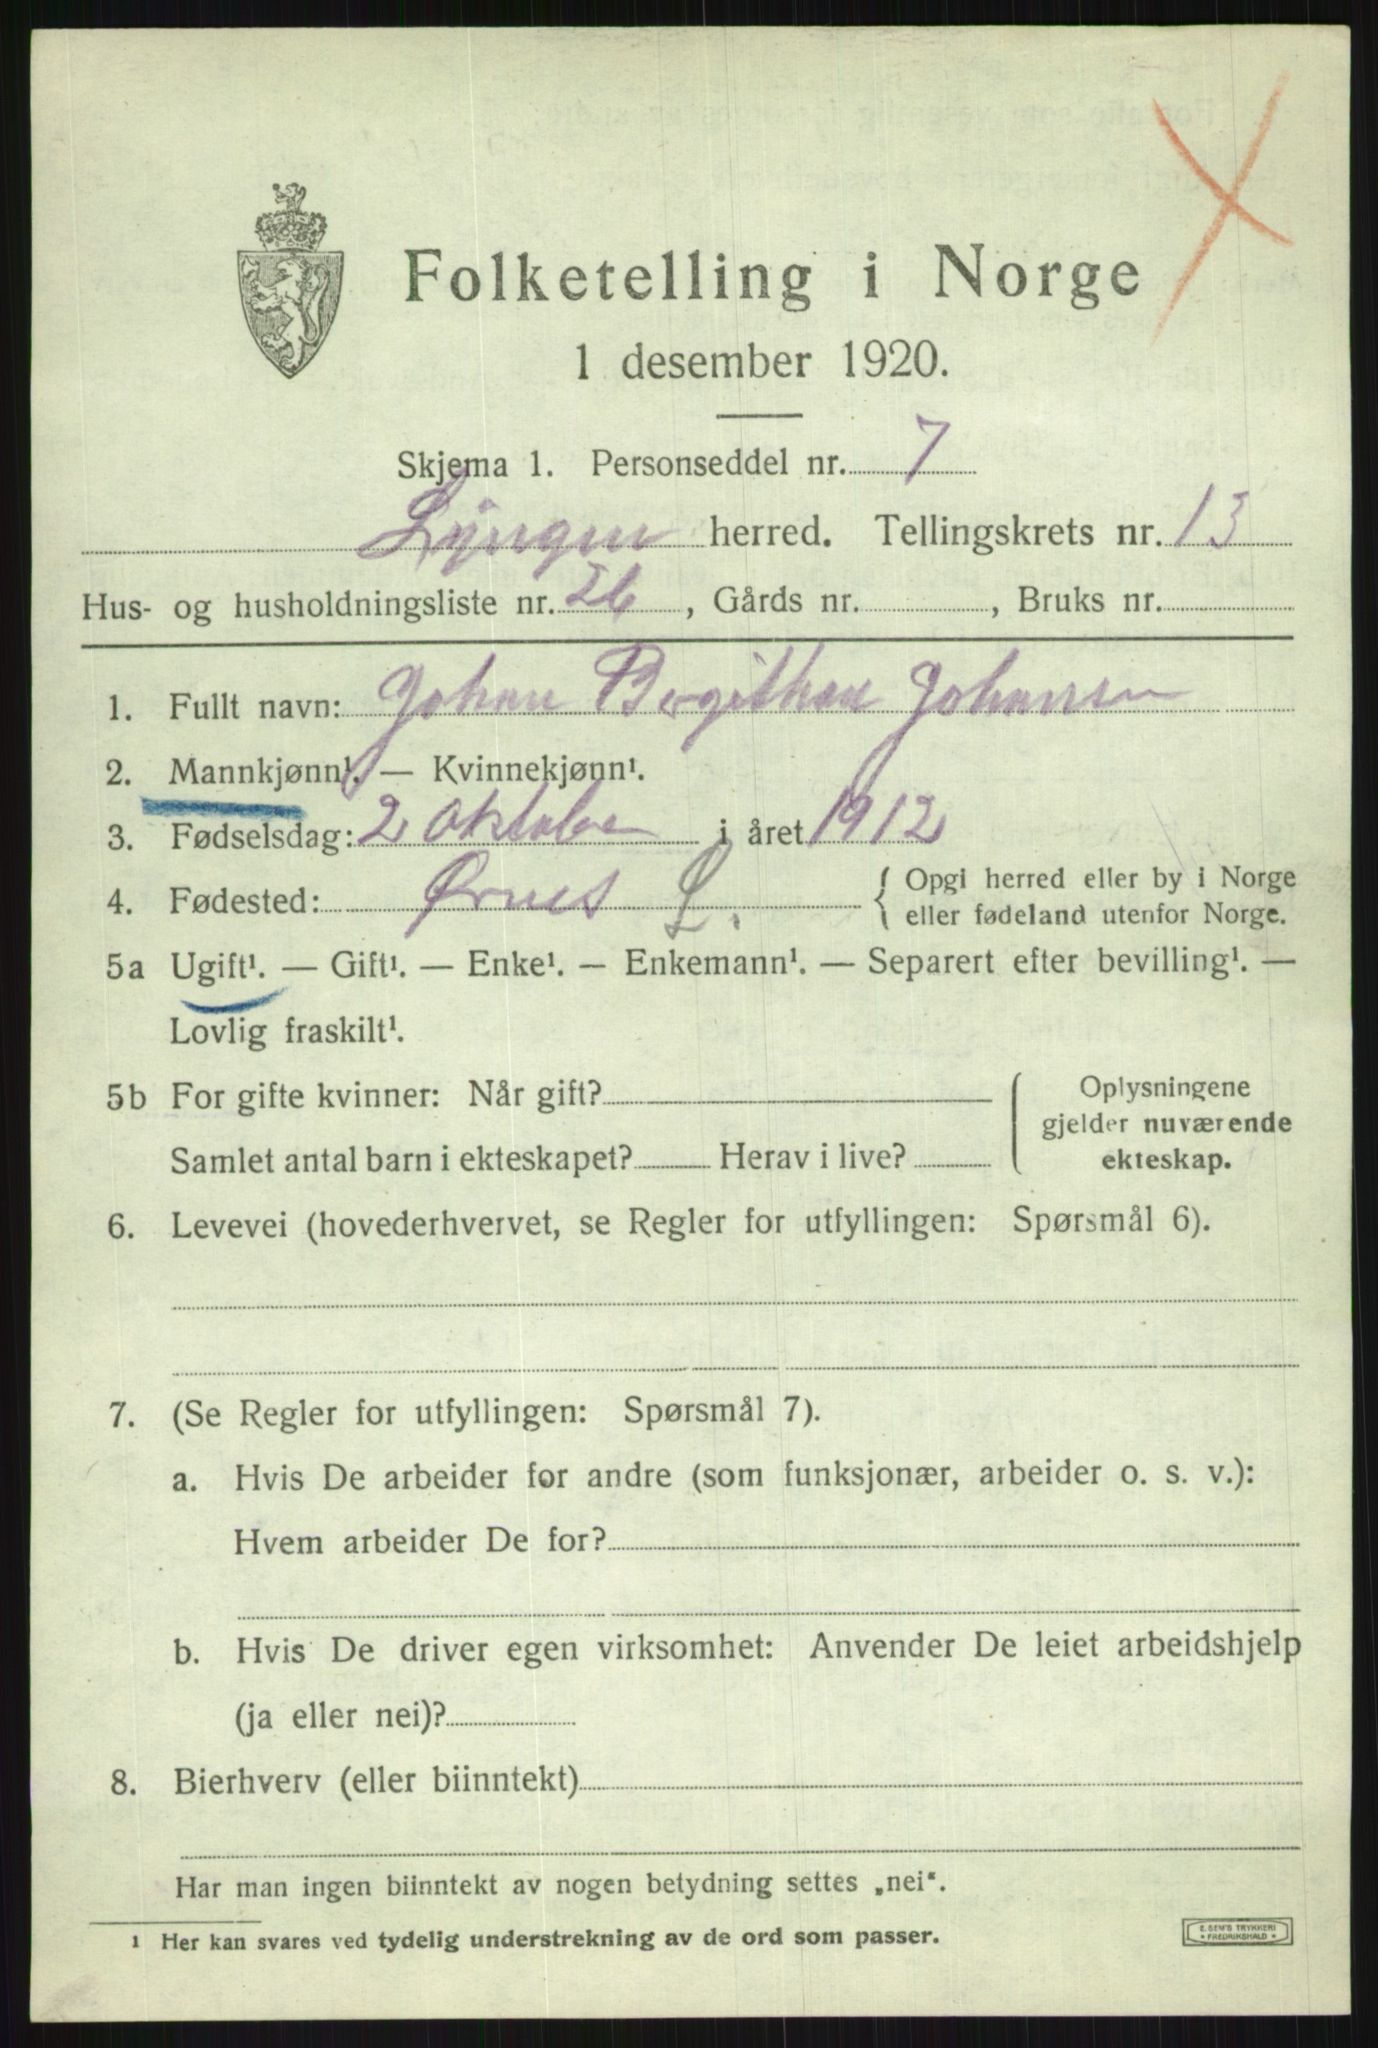 Folketelling i Norge
1 desember 1920.
Skjema 1. Personseddel nr. 7
Lyngen herred. Tellingskrets nr. 13
Hus- og husholdningsliste nr. 26, Gårds nr. , Bruks nr.
1. Fullt navn: Johan Bergithon Johansen
2. Mannkjønn¹. — Kvinnekjønn¹.
3. Fødselsdag: 2 Oktober i året 1912
4. Fødested: Ørnes L. { Opgi herred eller by i Norge
eller fødeland utenfor Norge.
5a Ugift¹. — Gift¹. — Enke¹. — Enkemann¹. — Separert efter bevilling¹. —
Lovlig fraskilt¹.
5b For gifte kvinner: Når gift?
Samlet antal barn i ekteskapet? Herav i live?
Oplysningene
gjelder nuværende
ekteskap.
6. Levevei (hovederhvervet, se Regler for utfyllingen: Spørsmål 6).
7. (Se Regler for utfyllingen: Spørsmål 7).
a. Hvis De arbeider for andre (som funksjonær, arbeider o. s. v.):
Hvem arbeider De for?
b. Hvis De driver egen virksomhet: Anvender De leiet arbeidshjelp
(ja eller nei)?
8. Bierhverv (eller biinntekt)
Har man ingen biinntekt av nogen betydning settes „nei“.
1 Her kan svares ved tydelig understrekning av de ord som passer.
E. SEM'S TRYKKERI
* FREDRIKSHALD *